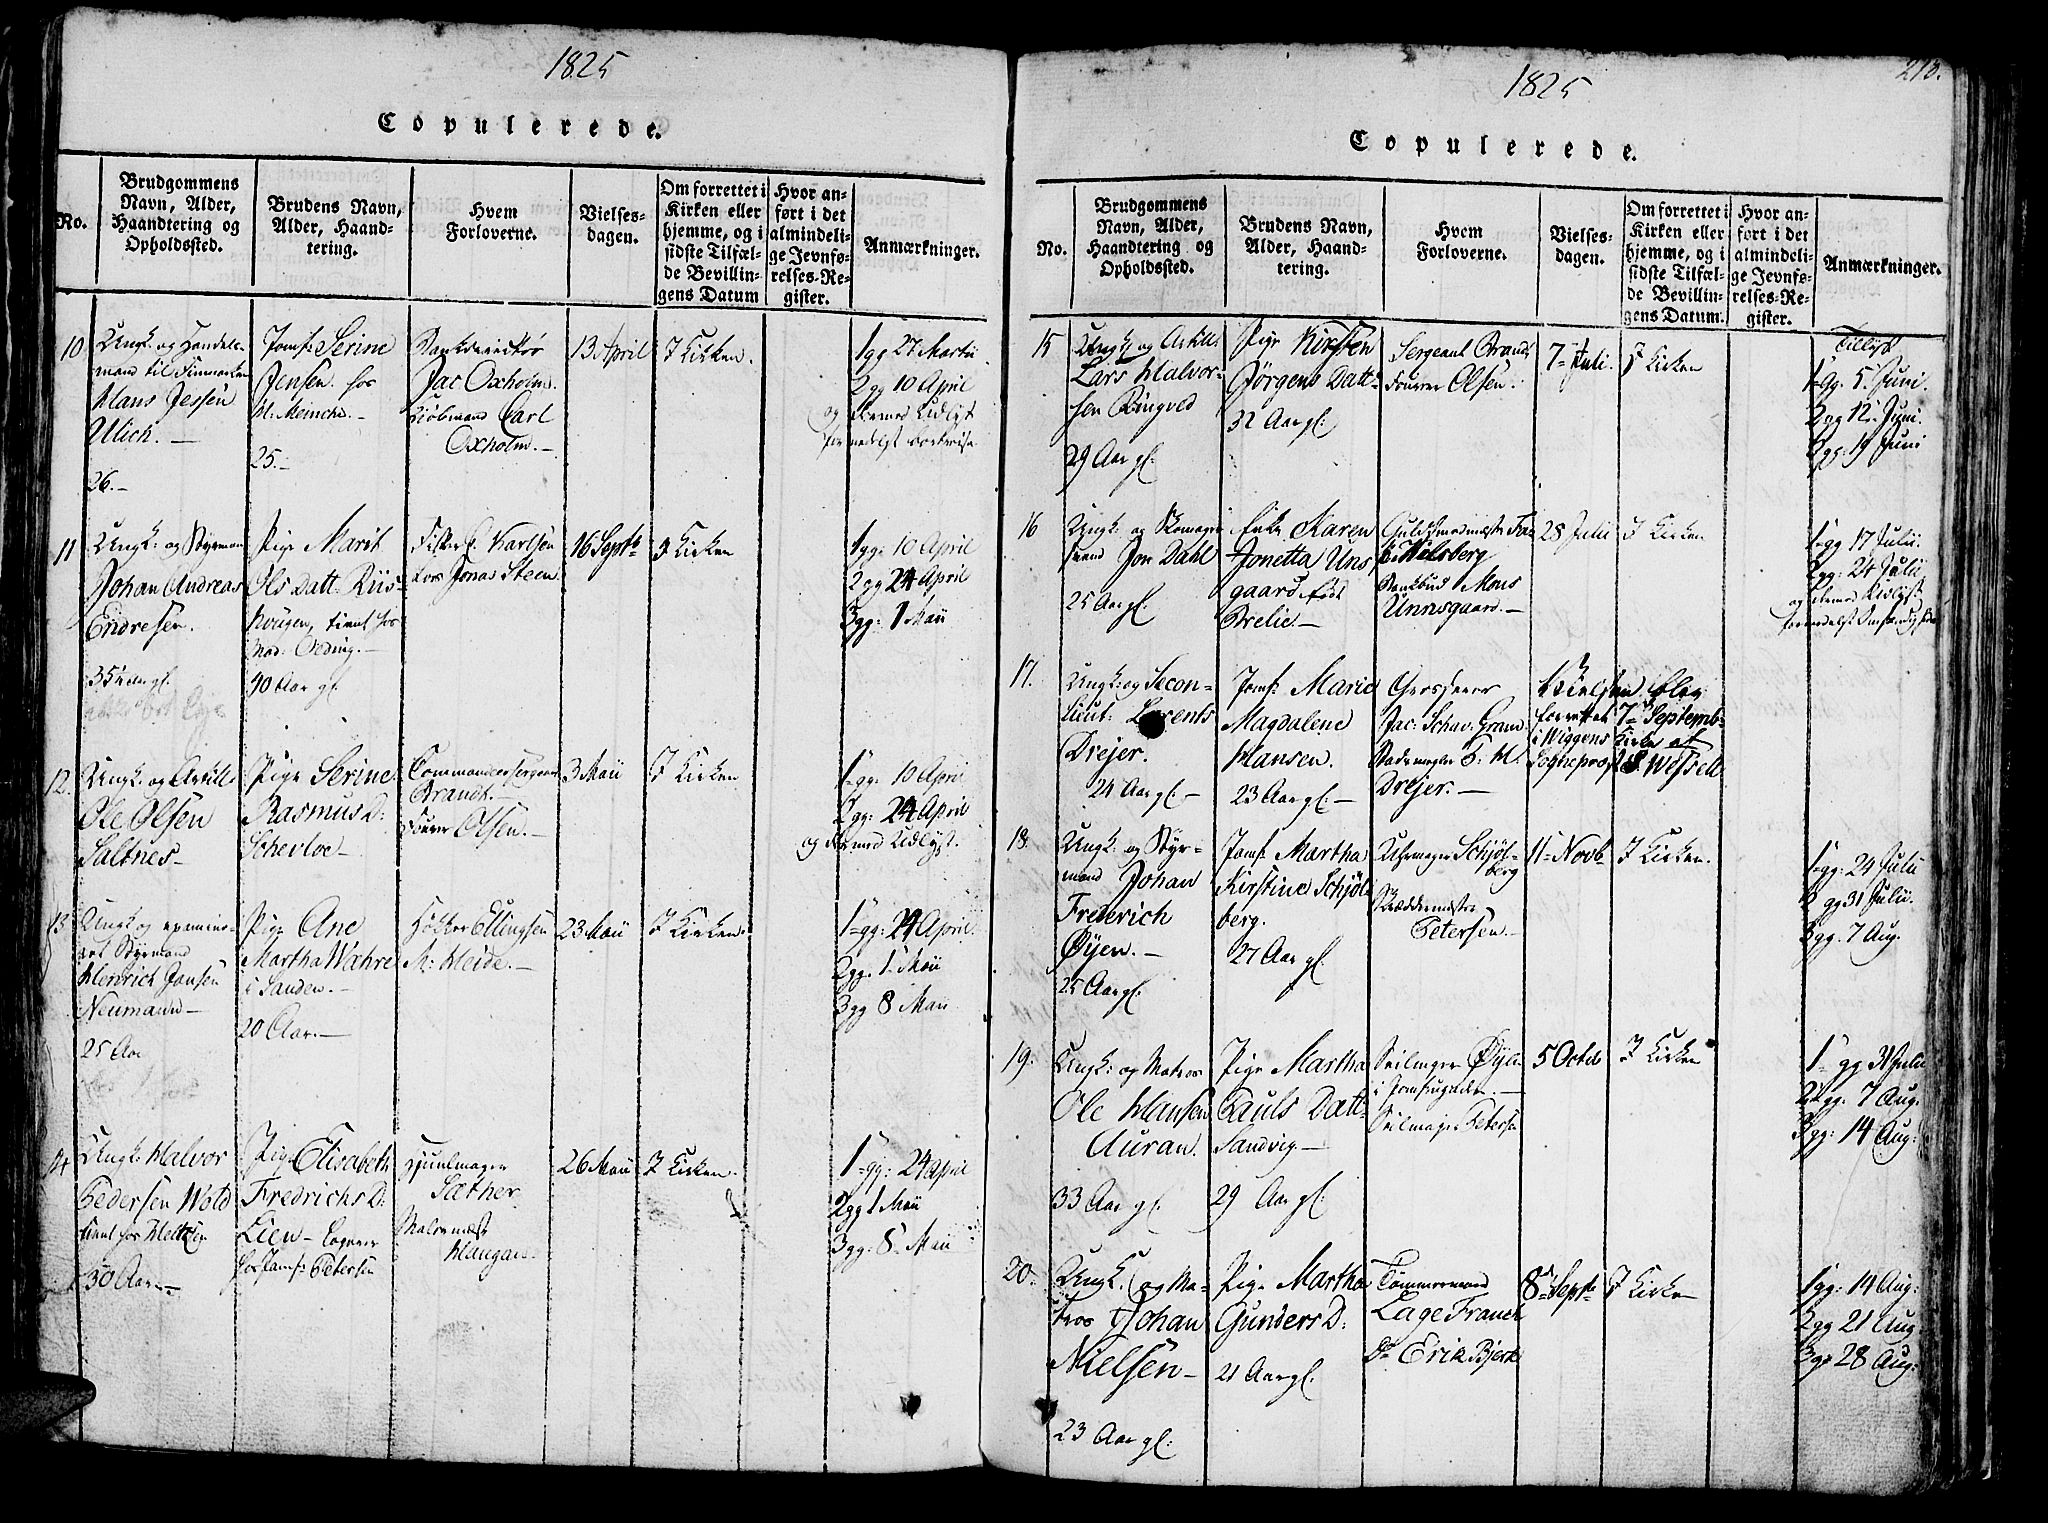 1825
Copulerede.
No.
Brudgommens
Navn, Alder,
Haandtering og
Opholdssted.
Brudens Navn,
Alder, Haand-
tering.
Hvem
Forloverne.
Vielses-
dagen.
Om forrettet i
Kirken eller
hjemme, og i
sidste Tilfæl-
de Bevillin-
gens Datum
Hvor an-
ført i det
almindeli-
ge Jevnfø-
relses-Re-
gister.
Anmærkninger.
10
Ungk: og Handels
mand til Finmarken
Hans Jessen
Ulich. —
26. —
Jomf: Serine
Jensen. hos
H. Meincke. —
25. —
Jac Oxholm.
Kiøbmand Carl
Oxholm. —
13 April
I Kirken.
1 gg 27 Martii
2 gg 10 April
og dermed Udlyst
11
Ungk: og Styrman
Johan Andreas
Endresen.
35 Aar gl.
Pige Marit
Ols Datt. Riis-
hougen, tient hos
Mad: Owding. —
40 Aar gl.
Fisker E. Karlsen
Jonas Steen
16 Septb
I Kirken
1 gg: 10 April
2 gg 24 April
3 gg: 1 Maii
12.
Ungk: og Artill:
Ole Olsen
Saltnes —
Pige Serine
Rasmus D:
Schevloe —
Commandeersergeant
Brandt. —
Fourer Olsen. —
3 Maii
I Kirken
1- gg: 10 April
2 gg: 24 April
og dermed Udlyst.
13
Ungk og exmine-
ret Styrmand
Henrich Jansen
Neumann —
25 Aar
Pige Ane
Martha Wahre
i Sanden. —
20 Aar. —
Høker Ellingsen
M: Heide. —
23 Maii
I Kirken.
1- gg: 24 April
2 gg. 1- Maii
3 gg 8 Maii
14
Ungk: Halvor
Pedersen Wold
tient hos Meltzer
30 Aar. —
Pige Elisabeth
Fredrichs D:
Lien — logerer
hos Jomf: Petersen
Hiulmager
Sæther
Malermest
Haugan —
26 Maii
I Kirken.
1- gg: 24 April
2 gg 1 Maii
3 gg: 8- Maii
1825
213.
Copulerede.
No.
Brudgommens
Navn, Alder,
Haandtering og
Opholdssted.
Brudens Navn,
Alder, Haand-
tering.
Hvem
Forloverne.
Vielses-
dagen.
Om forrettet i
Kirken eller
hjemme, og i
sidste Tilfæl-
de Bevillin-
gens Datum.
Hvor an-
ført i det
almindeli-
ge Jevnfø-
relses-Re-
gister.
Anmærkninger.
15
Ungk og Artill:
Lars Halvor-
sen Ringved
29 Aar gl.
Pige Kirsten
Jørgens Datt:
32 Aar gl.
Sergeant Brandt
Fourer Olsen. —
7- Juli.
I Kirken
Tillyst
1- gg. 5. Juni.
2 gg 12. Juni.
3 gg: 19 Juni
16
Ungk: og Skomager
svend Jon Dahl
25 Aar gl.
Enke Karen
Jonetta Uns
gaard født
Brelie. —
Guldsmedmester
Halsberg
Bankbud Mons
Unnsgaard. —
28 Julii
I Kirken
1- gg 17 Julii.
2 gg: 24 Julii
og dermed Udlyst
formedelst Omstændighed
17.
Ungk: og Secon-
Lieut: Lorents
Drejer.
24 Aar gl. —
Jomf: Marie
Magdalene
Hansen.
23 Aar gl. —
Grosserer
Jac: Schav: Gram
Stadsmægler H. M.
Drejer. —
Vielsen blev
forrettet 7- Septemb-
i Wiggens Kirke af
Sogneprost S. Wessell
18.
Ungk: og Styr-
mand Johan
Frederich
Øyen. —
25 Aar gl:
Jomf: Martha
Kirstine Schjøl
berg.
27 Aar gl.
Uhrmager Schjøl-
berg
Skræddermester
Petersen. —
11- Novb
I Kirken.
1- gg: 24 Julii
2 gg 31 Julii.
3 gg. 7 Aug.
19.
Ungk: og Matros
Ole Hansen
Auran.
33 Aar gl.
Pige Martha
Pauls Datt-
Sandvig. —
29 Aar gl:
Seilmager Øyen
i Jomfrugaden. —
Seilmager Petersen
5 Octob
I Kirken
1- gg 31 Julii
2 gg. 7 Aug.
3 gg: 14 Aug:
20.
Ungk. og Ma-
tros Johan
Nielsen —
23 Aar gl:
Pige Martha
Gunders D:
21 Aar gl.
Tømmermand
Lage Franck
Do Erik Bjerk
8- Septb
I Kirken
1 gg: 14 Aug:
2 gg 21 Aug
3 gg 28 Aug: